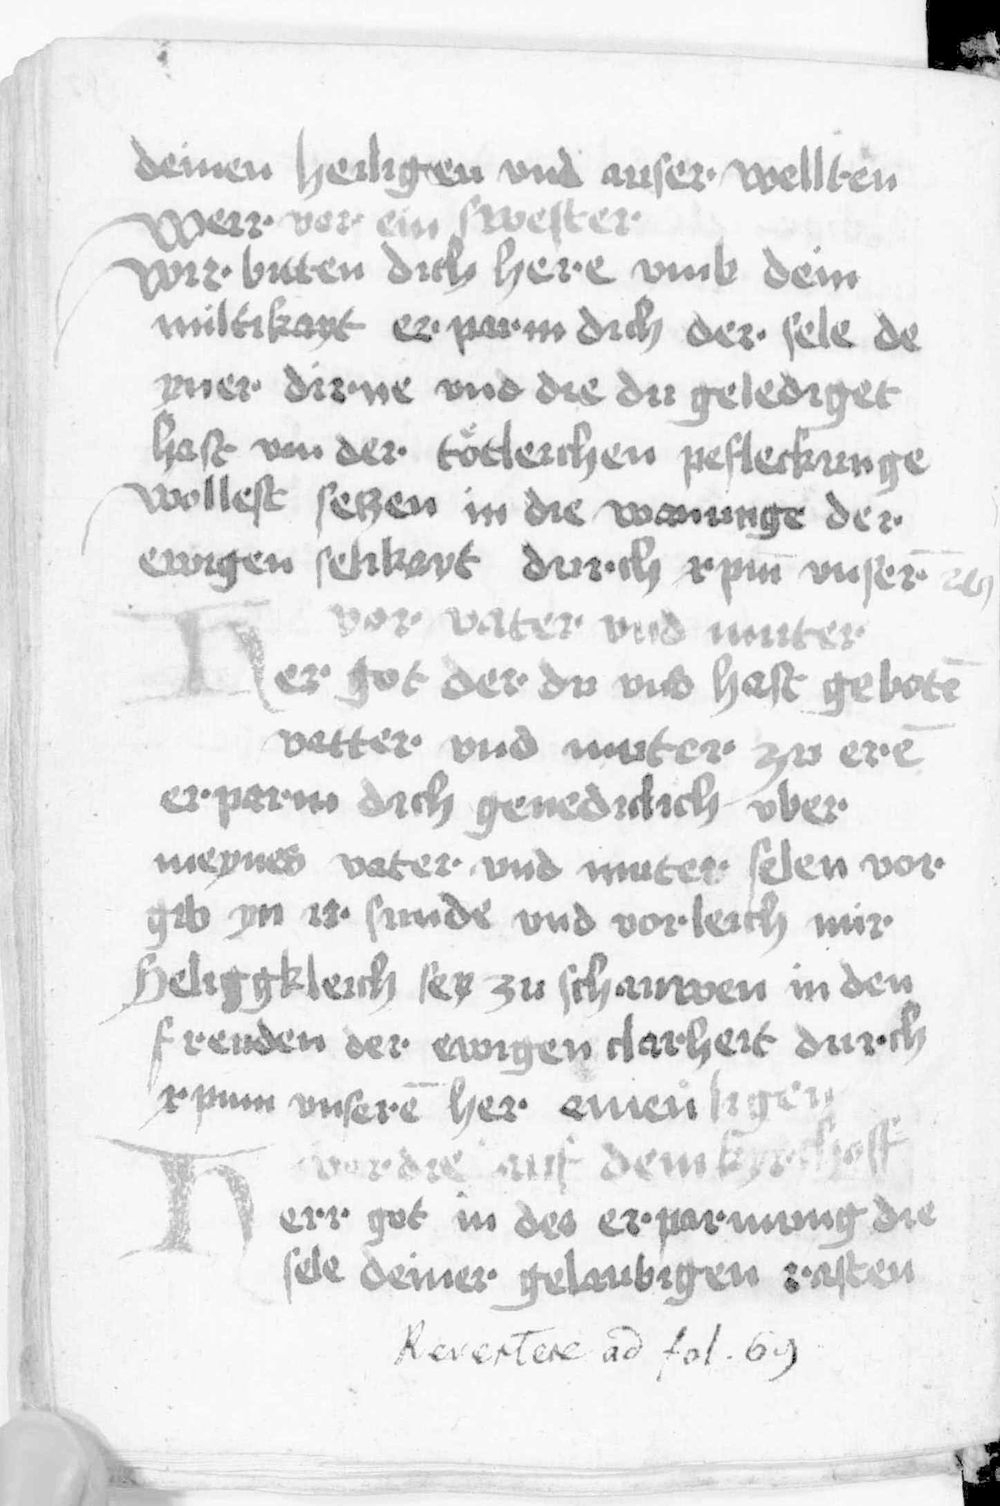 deinen heiligen vnd auser wellten
Werr vor ein swester
Wir bitten dich here vmb dein
miltikayt er parm dich der sele de
yner dirne vnd die du gelediget
hast von der tötleichen pefleckunge
wollest setzen in die wanunge der
ewigen selikayt durch xpm̄ vnser̄
vor vater vnd muter
Her got der du vns hast gebotē
vatter vnd muter zu erē
erparm dich genediclich vber
meynes vater vnd muter selen vor
gib yn ir sunde vnd vorleich mir
Heliggkleich sey zu schauwen in den
freuden der ewigen clarheit durch
xpmm vnserē her einen
vor die auf dem kyrchoff
Herr got in des erparmung die
sele deiner gelaubigen rasten
Revertere ad fol. 69